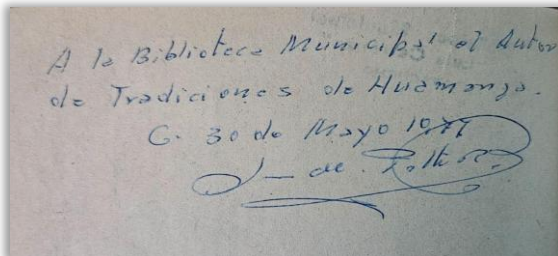 A la Biblioteca Municipal el Autor
de Tradiciones de Huamanga.
G. 30 de Mayo 1977
J de